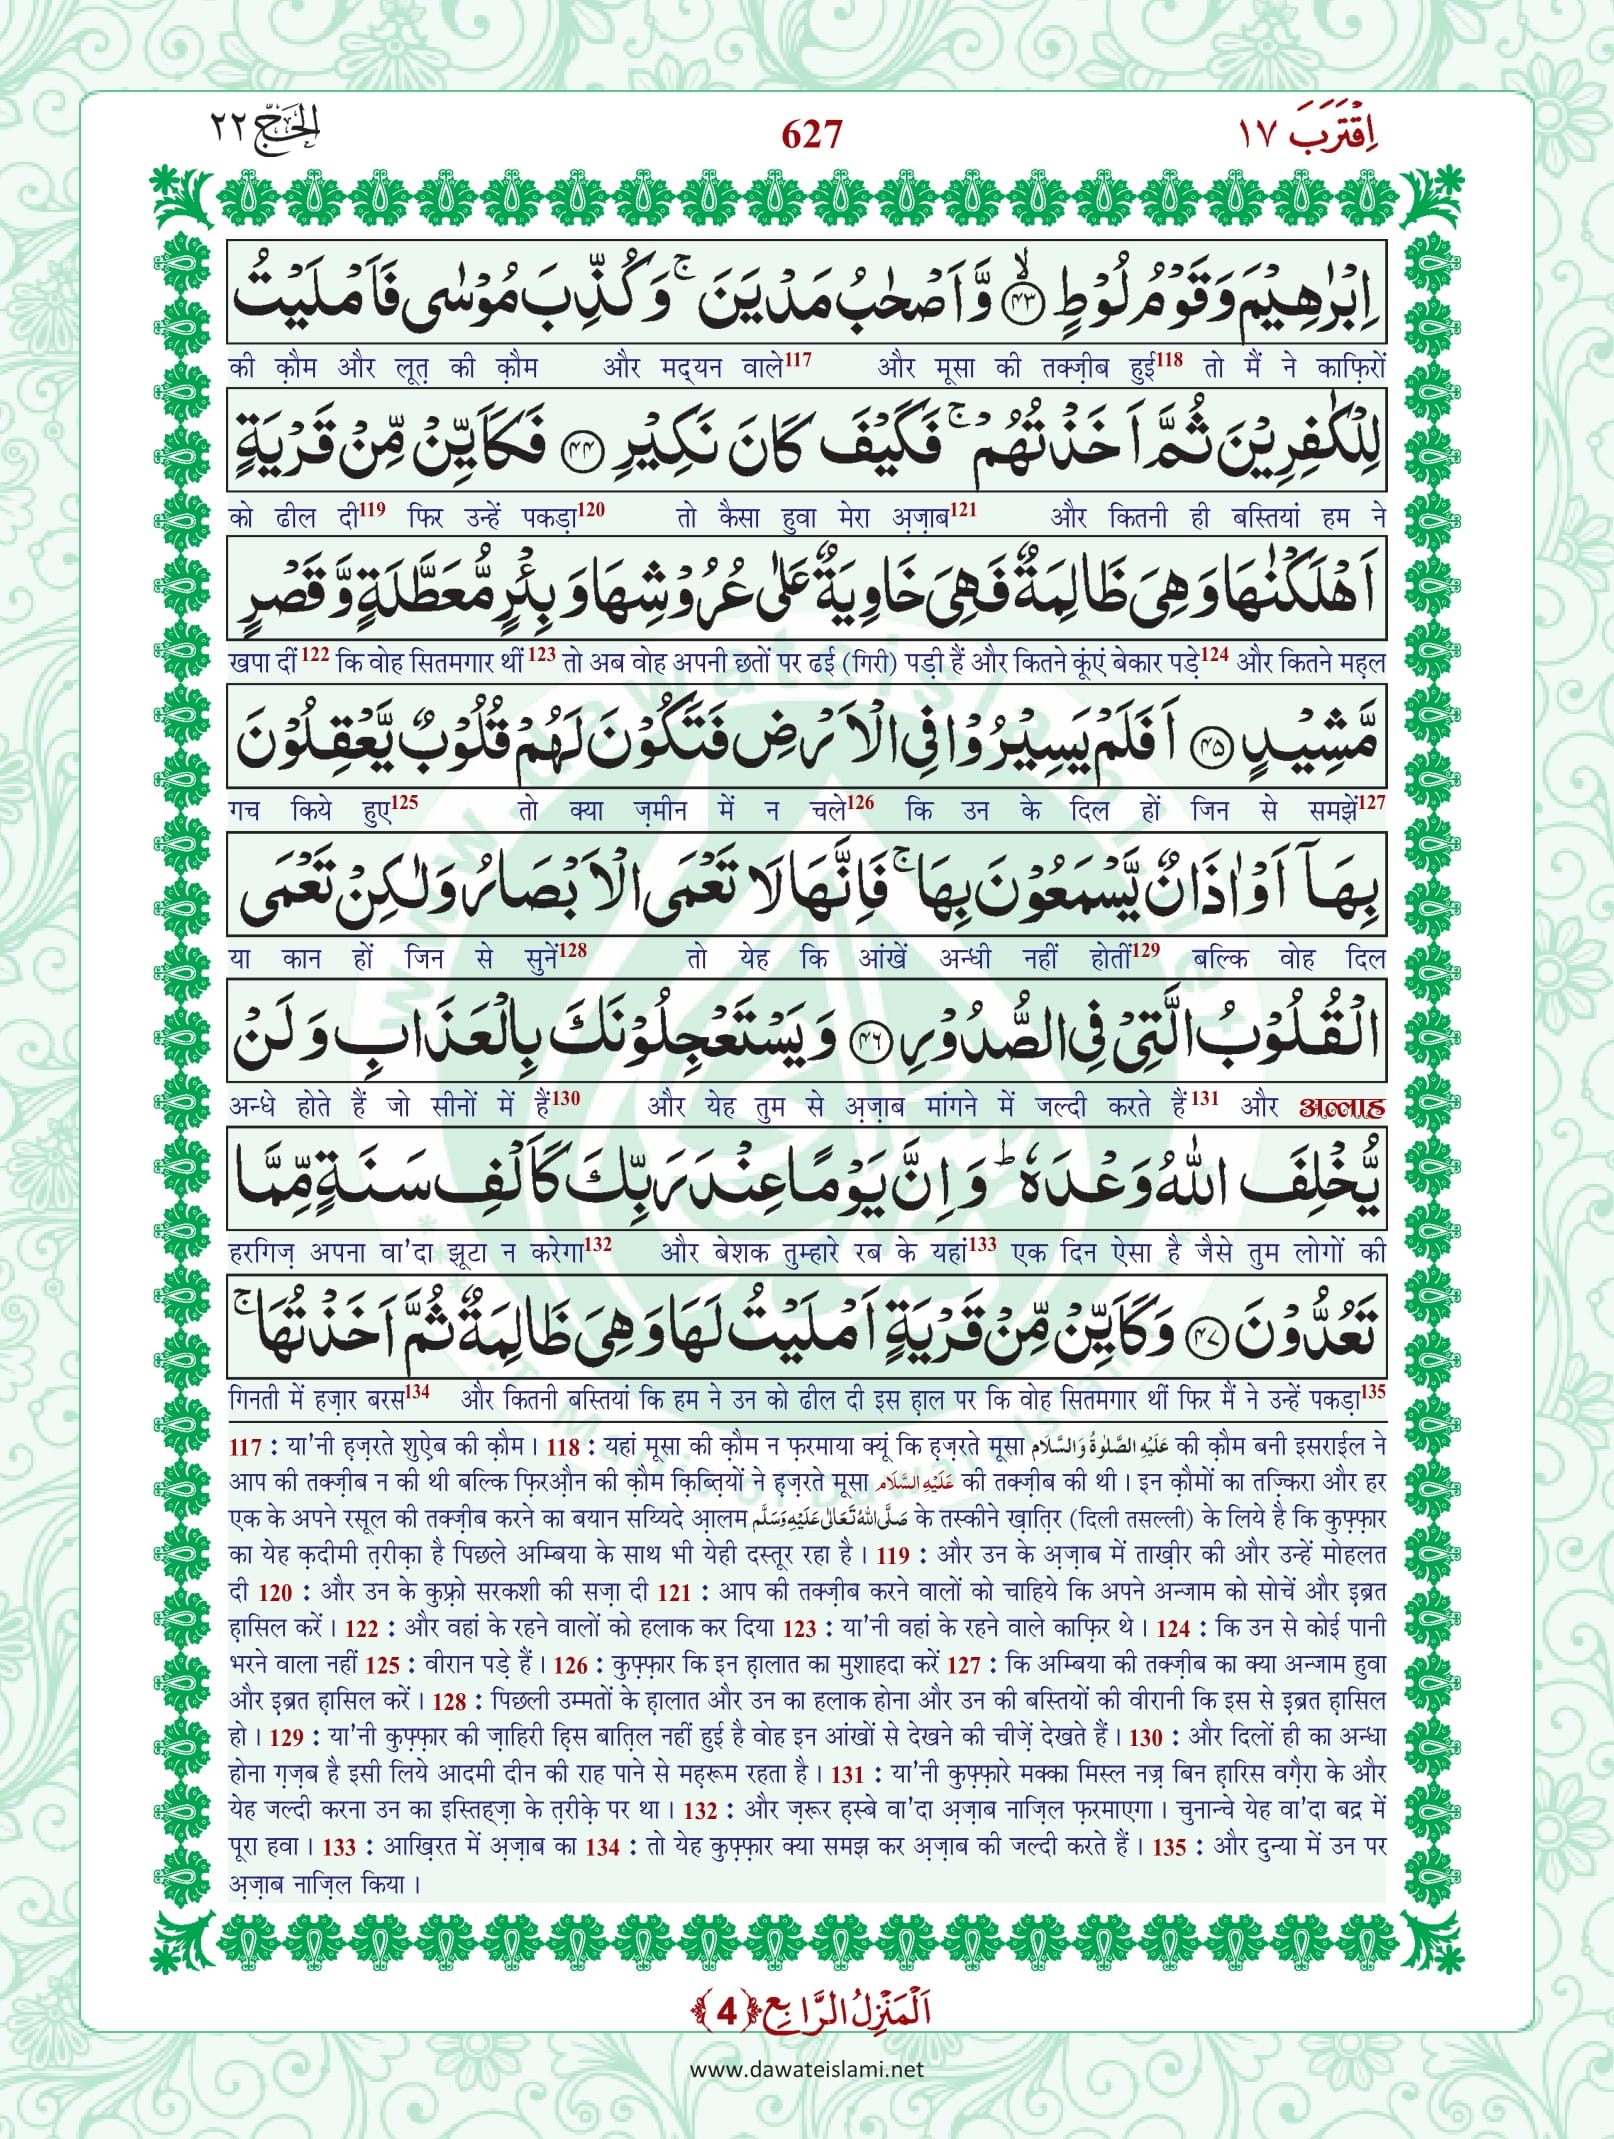 اِقْتَرَبَ ١٧
627
الْحَجّ ٢٢
اِبْرٰهِيْمَ وَقَوْمُ لُوْطٍ ﴿۴۳﴾ۙ وَّاَصْحٰبُ مَدْيَنَ ۚ وَكُذِّبَ مُوْسٰى فَاَمْلَيْتُ
की क़ौम और लूत़ की क़ौम और मद्यन वाले117 और मूसा की तक्ज़ीब हुई118 तो मैं ने काफ़िरों
لِلْكٰفِرِيْنَ ثُمَّ اَخَذْتُهُمْ ۚ فَكَيْفَ كَانَ نَكِيْرِ ﴿۴۴﴾ فَكَاَيِّنْ مِّنْ قَرْيَةٍ
को ढील दी119 फिर उन्हें पकड़ा120 तो कैसा हुवा मेरा अ़ज़ाब121 और कितनी ही बस्तियां हम ने
اَهْلَكْنٰهَا وَهِيَ ظَالِمَةٌ فَهِيَ خَاوِيَةٌ عَلٰى عُرُوْشِهَا وَبِئْرٍ مُّعَطَّلَةٍ وَّقَصْرٍ
खपा दीं122 कि वोह सितमगार थीं123 तो अब वोह अपनी छतों पर ढई (गिरी) पड़ी हैं और कितने कूंएं बेकार पड़े124 और कितने मह़ल
مَّشِيْدٍ ﴿۴۵﴾ اَفَلَمْ يَسِيْرُوْا فِى الْاَرْضِ فَتَكُوْنَ لَهُمْ قُلُوْبٌ يَّعْقِلُوْنَ
गच किये हुए125 तो क्या ज़मीन में न चले126 कि उन के दिल हों जिन से समझें127
بِهَاۤ اَوْ اٰذَانٌ يَّسْمَعُوْنَ بِهَا ۚ فَاِنَّهَا لَا تَعْمَى الْاَبْصَارُ وَلٰكِنْ تَعْمَى
या कान हों जिन से सुनें128 तो येह कि आंखें अन्धी नहीं होतीं129 बल्कि वोह दिल
الْقُلُوْبُ الَّتِيْ فِى الصُّدُوْرِ ﴿۴۶﴾ وَيَسْتَعْجِلُوْنَكَ بِالْعَذَابِ وَلَنْ
अन्धे होते हैं जो सीनों में हैं130 और येह तुम से अ़ज़ाब मांगने में जल्दी करते हैं131 और अल्लाह
يُّخْلِفَ اللّٰهُ وَعْدَهٗ ؕ وَاِنَّ يَوْمًا عِنْدَ رَبِّكَ كَاَلْفِ سَنَةٍ مِّمَّا
हरगिज़ अपना वा'दा झूटा न करेगा132 और बेशक तुम्हारे रब के यहां133 एक दिन ऐसा है जैसे तुम लोगों की
تَعُدُّوْنَ ﴿۴۷﴾ وَكَاَيِّنْ مِّنْ قَرْيَةٍ اَمْلَيْتُ لَهَا وَهِيَ ظَالِمَةٌ ثُمَّ اَخَذْتُهَا ۚ
गिनती में हज़ार बरस134 और कितनी बस्तियां कि हम ने उन को ढील दी इस ह़ाल पर कि वोह सितमगार थीं फिर मैं ने उन्हें पकड़ा135
117 : या'नी ह़ज़रते शुऐ़ब की क़ौम। 118 : यहां मूसा की क़ौम न फ़रमाया क्यूं कि ह़ज़रते मूसा عَلَيْهِ الصَّلٰوةُ وَالسَّلَام की क़ौम बनी इसराईल ने
आप की तक्ज़ीब न की थी बल्कि फ़िरऔ़न की क़ौम क़िब्त़ियों ने ह़ज़रते मूसा عَلَيْهِ السَّلَام की तक्ज़ीब की थी। इन क़ौमों का तज़्किरा और हर
एक के अपने रसूल की तक्ज़ीब करने का बयान सय्यिदे आ़लम صَلَّى اللّٰهُ تَعَالٰى عَلَيْهِ وَسَلَّم के तस्कीने ख़ात़िर (दिली तसल्ली) के लिये है कि कुफ़्फ़ार
का येह क़दीमी त़रीक़ा है पिछले अम्बिया के साथ भी येही दस्तूर रहा है। 119 : और उन के अ़ज़ाब में ताख़ीर की और उन्हें मोहलत
दी 120 : और उन के कुफ़्रो सरकशी की सज़ा दी 121 : आप की तक्ज़ीब करने वालों को चाहिये कि अपने अन्जाम को सोचें और इ़ब्रत
ह़ासिल करें। 122 : और वहां के रहने वालों को हलाक कर दिया 123 : या'नी वहां के रहने वाले काफ़िर थे। 124 : कि उन से कोई पानी
भरने वाला नहीं 125 : वीरान पड़े हैं। 126 : कुफ़्फ़ार कि इन ह़ालात का मुशाहदा करें 127 : कि अम्बिया की तक्ज़ीब का क्या अन्जाम हुवा
और इ़ब्रत ह़ासिल करें। 128 : पिछली उम्मतों के ह़ालात और उन का हलाक होना और उन की बस्तियों की वीरानी कि इस से इ़ब्रत ह़ासिल
हो। 129 : या'नी कुफ़्फ़ार की ज़ाहिरी ह़िस बात़िल नहीं हुई है वोह इन आंखों से देखने की चीज़ें देखते हैं। 130 : और दिलों ही का अन्धा
होना ग़ज़ब है इसी लिये आदमी दीन की राह पाने से मह़रूम रहता है। 131 : या'नी कुफ़्फ़ारे मक्का मिस्ल नज़्र बिन ह़ारिस वग़ैरा के और
येह जल्दी करना उन का इस्तिह्ज़ा के त़रीक़े पर था। 132 : और ज़रूर ह़स्बे वा'दा अ़ज़ाब नाज़िल फ़रमाएगा। चुनान्चे येह वा'दा बद्र में
पूरा हवा। 133 : आख़िरत में अ़ज़ाब का 134 : तो येह कुफ़्फ़ार क्या समझ कर अ़ज़ाब की जल्दी करते हैं। 135 : और दुन्या में उन पर
अ़ज़ाब नाज़िल किया।
اَلْمَنْزِلُ الرَّابِع ﴿4﴾
www.dawateislami.net